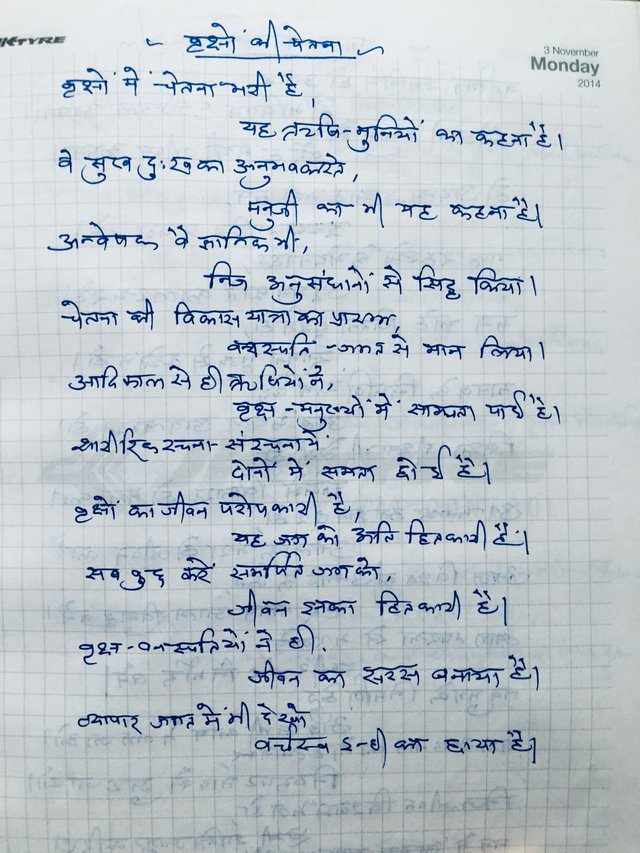 KTYRE
3 November
Monday
2014
वृक्षों की चेतना
वृक्षों में चेतना भरी है,
यह ऋषि-मुनियों का कहना है।
वे सुख दुःख का अनुभव करते,
मनुजी का भी यह कहना है।
अन्वेषक वैज्ञानिक भी,
निज अनुसंधानों से सिद्ध किया।
चेतना की विकास यात्रा का प्रारम्भ,
वनस्पति-जगत से मान लिया।
आदिकाल से ही ऋषियों ने,
वृक्ष-मनुष्यों में साम्यता पाई है।
शारीरिक रचना-संरचना में
दोनों में समता होई है।
वृक्षों का जीवन परोपकारी है,
यह जग को अति हितकारी है।
सब कुछ करें समर्पित जग को,
जीवन इनका हितकारी है।
वृक्ष-वनस्पतियों ने ही,
जीवन का सरस बनाया है।
व्यापार जगत में भी देखो
वर्चस्व इन्ही का छाया है।